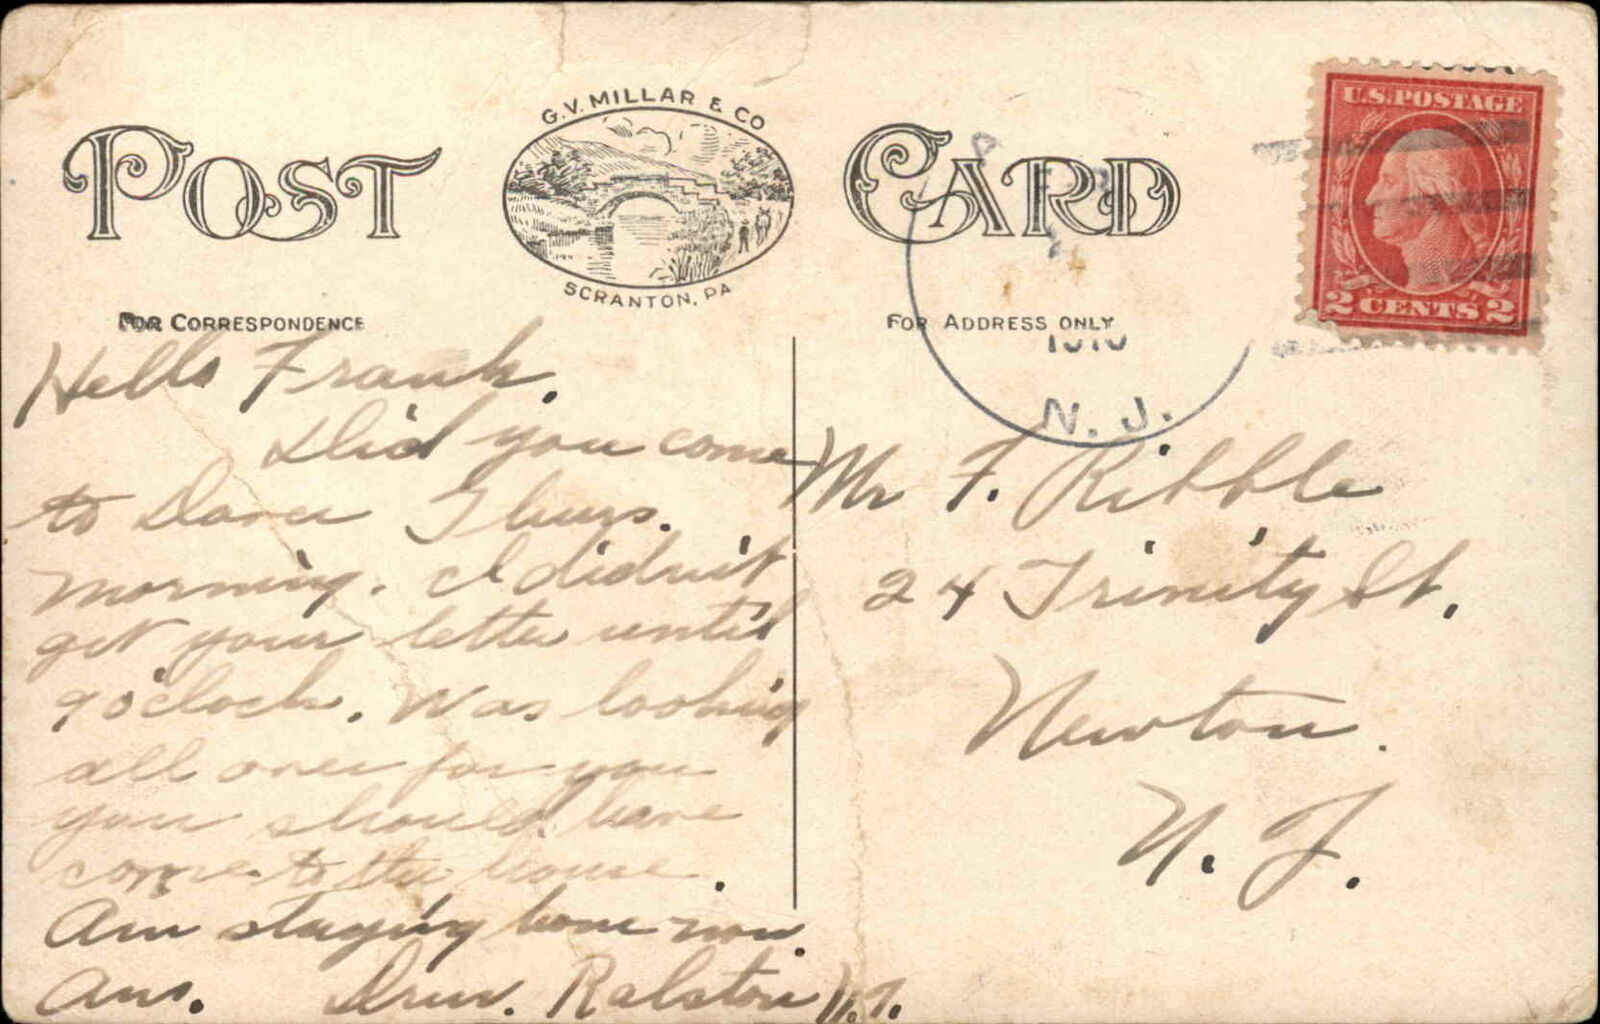 POST CARD
G. V. MILLAR & CO
SCRANTON, PA
U.S. POSTAGE
2 CENTS 2
FOR CORRESPONDENCE
FOR ADDRESS ONLY
N. J.
Hello Frank.
Did you come
to Dover Thurs.
morning. I didn't
get your letter until
9 o'clock. Was looking
all over for you
you should have
come to the house.
Am staying home now.
Ans. Drew. Ralston N.J.
Mr F. Ribble
24 Trinity St.
Newton.
N. J.